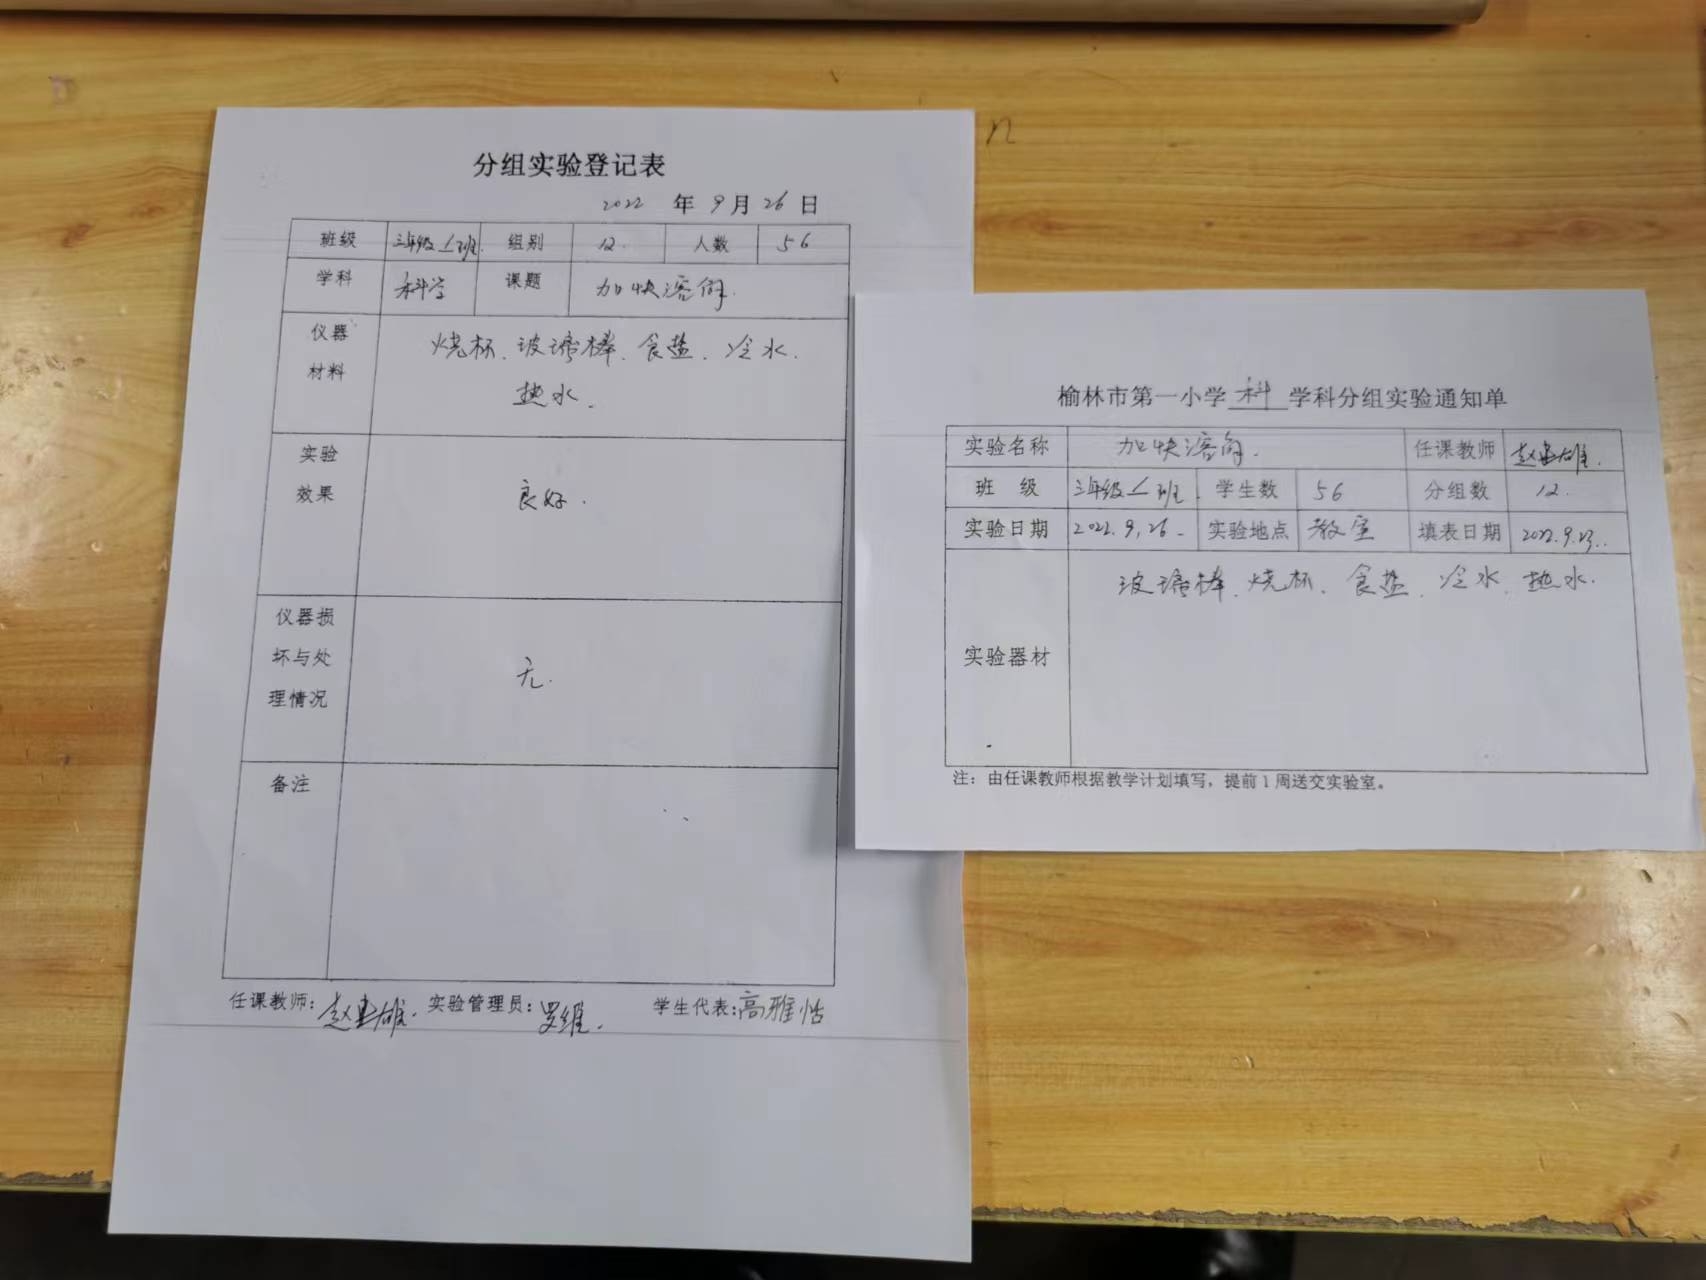 分组实验登记表
2022 年 9 月 26 日
班级 三年级 班 组别 12. 人数 56
学科 科学 课题 加快溶解.
仪器材料 烧杯、玻璃棒、食盐、冷水、
热水.
实验效果 良好.
仪器损坏与处理情况 无.
备注
任课教师: 赵 雄. 实验管理员: 罗维. 学生代表: 高雅恬
榆林市第一小学 科 学科分组实验通知单
实验名称 加快溶解. 任课教师 赵 雄.
班 级 三年级 班. 学生数 56 分组数 12.
实验日期 2022.9.26. 实验地点 教室 填表日期 2022.9.23..
实验器材 玻璃棒、烧杯、食盐、冷水、热水.
注：由任课教师根据教学计划填写，提前 1 周送交实验室。
n